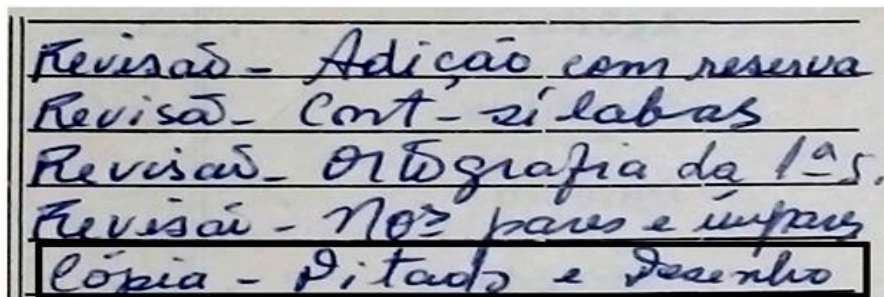 Revisão - Adição com reserva
Revisão - Cont - sílabas
Revisão - Ortografia da 1ª s.
Revisão - Nos pares e ímpares
Cópia - Ditado e Desenho